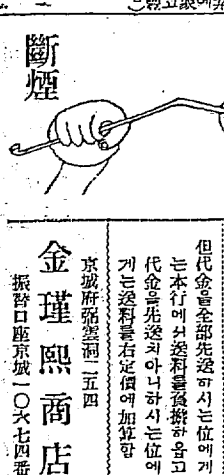 斷煙
但代金을全部先送하시는位에
는本行에서送料를負擔하옵고
代金을先送치아니하시는位에
게는送料를右定價에加算함
京城府弼雲洞二五四
金瑾熙商店
振替口座京城一〇六七四番